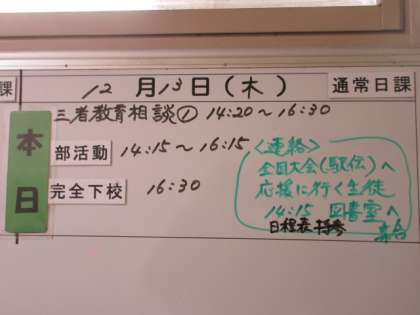 課
12月13日(木)
通常日課
本日
三者教育相談① 14:20〜16:30
部活動 14:15〜16:15
完全下校 16:30
<連絡>
全国大会(駅伝)へ
応援に行く生徒
14:15 図書室へ
集合
日程表持参